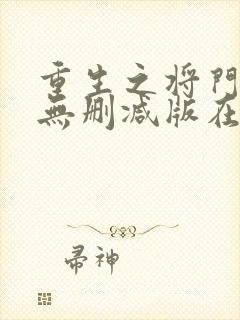 重生之将門
無刪減版在
帚神